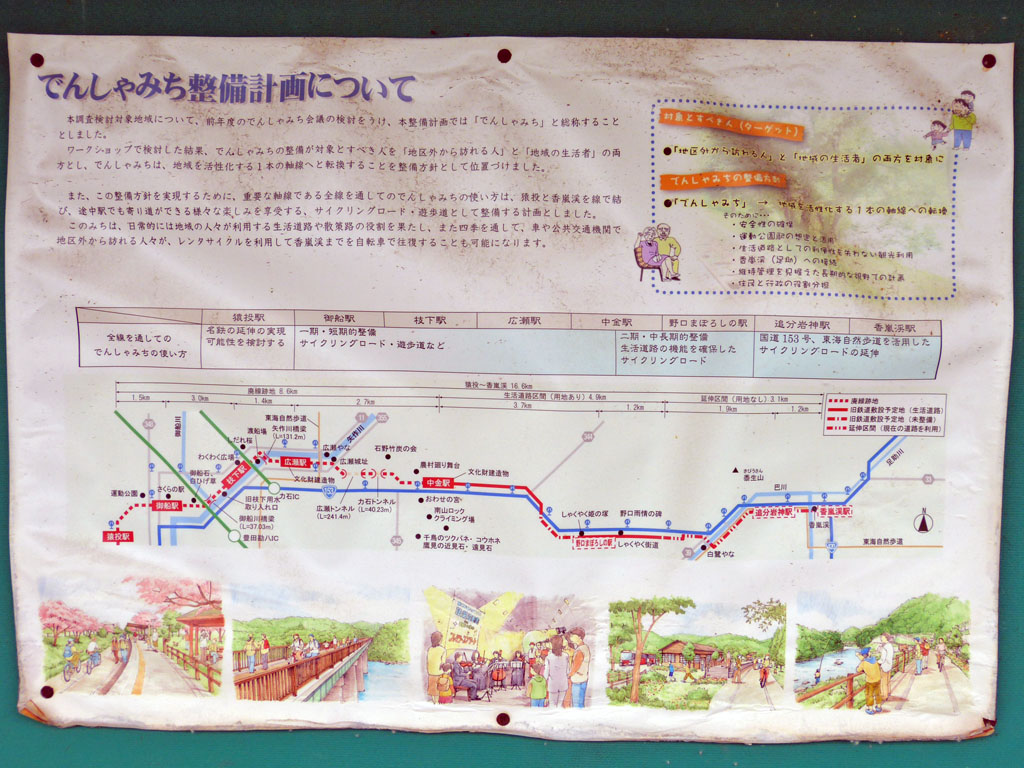 でんしゃみち整備計画について
本調査検討対象地域について、前年度のでんしゃみち会議の検討をうけ、本整備計画では「でんしゃみち」と総称すること
としました。
ワークショップで検討した結果、でんしゃみちの整備が対象とすべき人を「地区外から訪れる人」と「地域の生活者」の両
方とし、でんしゃみちは、地域を活性化する1本の軸線へと転換することを整備方針として位置づけました。
また、この整備方針を実現するために、重要な軸線である全線を通してのでんしゃみちの使い方は、猿投と香嵐渓を線で結
び、途中駅でも寄り道ができる様々な楽しみを享受する、サイクリングロード・遊歩道として整備する計画としました。
このみちは、日常的には地域の人々が利用する生活道路や散策路の役割を果たし、また四季を通して、車や公共交通機関で
地区外から訪れる人々が、レンタサイクルを利用して香嵐渓までを自転車で往復することも可能になります。
対象とすべき人(ターゲット)
●「地区外から訪れる人」と「地域の生活者」の両方を対象に
でんしゃみちの整備方針
●「でんしゃみち」→ 地域を活性化する1本の軸線への転換
そのために・・・
・安全性の確保
・運動公園駅の想定と活用
・生活道路としての利便性を失わない観光利用
・香嵐渓(足助)への接続
・維持管理を見据えた長期的な視野での計画
・住民と行政の役割分担
猿投駅 御船駅 枝下駅 広瀬駅 中金駅 野口まぼろしの駅 追分岩神駅 香嵐渓駅
全線を通しての
でんしゃみちの使い方
名鉄の延伸の実現
可能性を検討する
一期・短期的整備
サイクリングロード・遊歩道など
二期・中長期的整備
生活道路の機能を確保した
サイクリングロード
国道153号、東海自然歩道を活用した
サイクリングロードの延伸
猿投~香嵐渓 16.6km
廃線跡地 8.6km
生活道路区間(用地あり)4.9km
延伸区間(用地なし)3.1km
1.5km 3.0km 1.4km 2.7km 3.7km 1.2km 1.9km 1.2km
廃線跡地
旧鉄道敷設予定地(生活道路)
旧鉄道敷設予定地(未整備)
延伸区間(現在の道路を利用)
東海自然歩道
渡船場
矢作川橋梁
(L=131.2m)
しだれ桜
わくわく広場
御船石、
白ひげ草
さくらの駅
運動公園
猿投駅
御船駅
枝下駅
広瀬駅
文化財建造物
広瀬やな
広瀬城址
矢作川
石野竹炭の会
農村廻り舞台
文化財建造物
中金駅
力石IC
旧枝下用水
取り入れ口
御船川橋梁
(L=37.03m)
豊田勘八IC
広瀬トンネル
(L=241.4m)
力石トンネル
(L=40.23m)
おわせの宮
南山ロック
クライミング場
千鳥のツクバネ・コウホネ
鷹見の近見石・遠見石
しゃくやく姫の塚
野口雨情の碑
野口まぼろしの駅
しゃくやく街道
白鷺やな
香生山
巴川
追分岩神駅
香嵐渓駅
香嵐渓
足助川
東海自然歩道
N